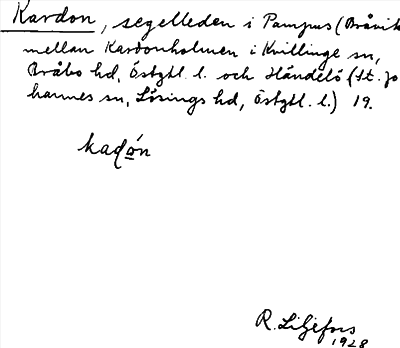 Kardon, segelleden i Pampus (Bråvik
mellan Kardonholmen i Kvillinge sn,
Bråbo hd, Östgtl. l. och Händelö (St. Jo
hannes sn, Lösings hd, Östgtl. l.) 19.
kadó̱n
R. Liljefors
1928